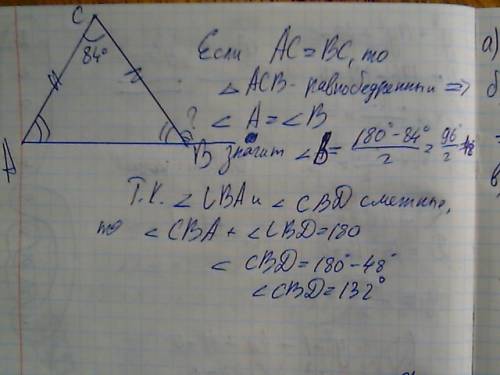 C
84°
A
?
B
Если AC = BC, то
△ ACB - равнобедренный =>
∠ A = ∠ B
значит ∠ B = (180° - 84°)/2 = 96°/2 = 48
Т.к. ∠ CBA и ∠ CBD смежные,
то ∠ CBA + ∠ CBD = 180
∠ CBD = 180° - 48°
∠ CBD = 132°
а)
б
в